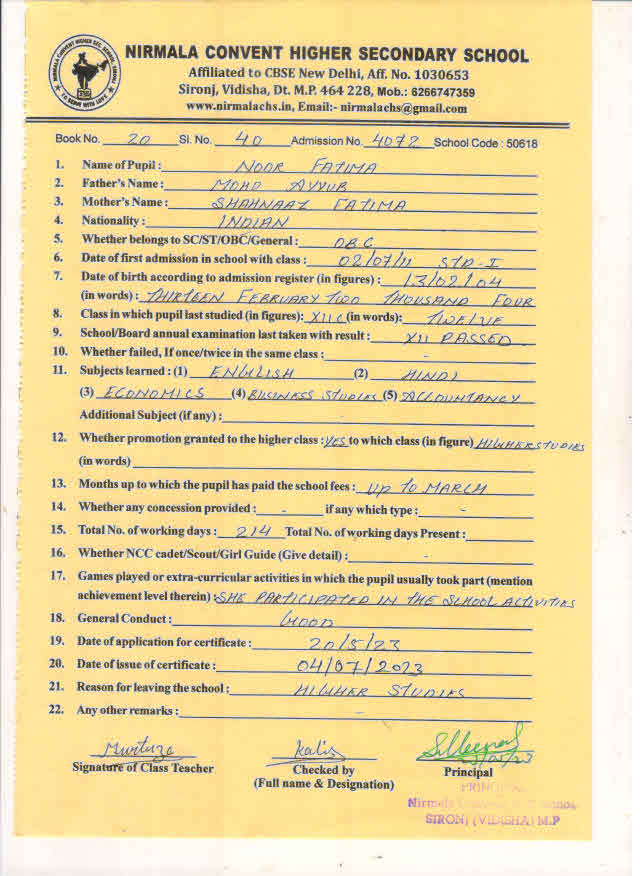 NIRMALA CONVENT HIGHER SECONDARY SCHOOL
Affiliated to CBSE New Delhi, Aff. No. 1030653
Sironj, Vidisha, Dt. M.P. 464 228, Mob.: 6266747359
www.nirmalachs.in, Email:- nirmalachs@gmail.com
Book No. 20 Sl. No. 40 Admission No. 4072 School Code : 50618
1. Name of Pupil : NOOR FATIMA
2. Father's Name : MOHD AYYUB
3. Mother's Name : SHAHNAAZ FATIMA
4. Nationality : INDIAN
5. Whether belongs to SC/ST/OBC/General : OBC
6. Date of first admission in school with class : 02/07/11 STD-I
7. Date of birth according to admission register (in figures) : 13/02/04
(in words) : THIRTEEN FEBRUARY TWO THOUSAND FOUR
8. Class in which pupil last studied (in figures): XII C (in words): TWELVE
9. School/Board annual examination last taken with result : XII PASSED
10. Whether failed, If once/twice in the same class : -
11. Subjects learned : (1) ENGLISH (2) HINDI
(3) ECONOMICS (4) BUSINESS STUDIES (5) ACCOUNTANCY
Additional Subject (if any) : -
12. Whether promotion granted to the higher class : YES to which class (in figure) HIGHER STUDIES
(in words)
13. Months up to which the pupil has paid the school fees : UP TO MARCH
14. Whether any concession provided : - if any which type : -
15. Total No. of working days : 214 Total No. of working days Present :
16. Whether NCC cadet/Scout/Girl Guide (Give detail) : -
17. Games played or extra-curricular activities in which the pupil usually took part (mention
achievement level therein) : SHE PARTICIPATED IN THE SCHOOL ACTIVITIES
18. General Conduct : GOOD
19. Date of application for certificate : 20/5/23
20. Date of issue of certificate : 04/07/2023
21. Reason for leaving the school : HIGHER STUDIES
22. Any other remarks : -
Signature of Class Teacher Checked by Principal
(Full name & Designation)
PRINCIPAL
Nirmala
SIRONJ (VIDISHA) M.P